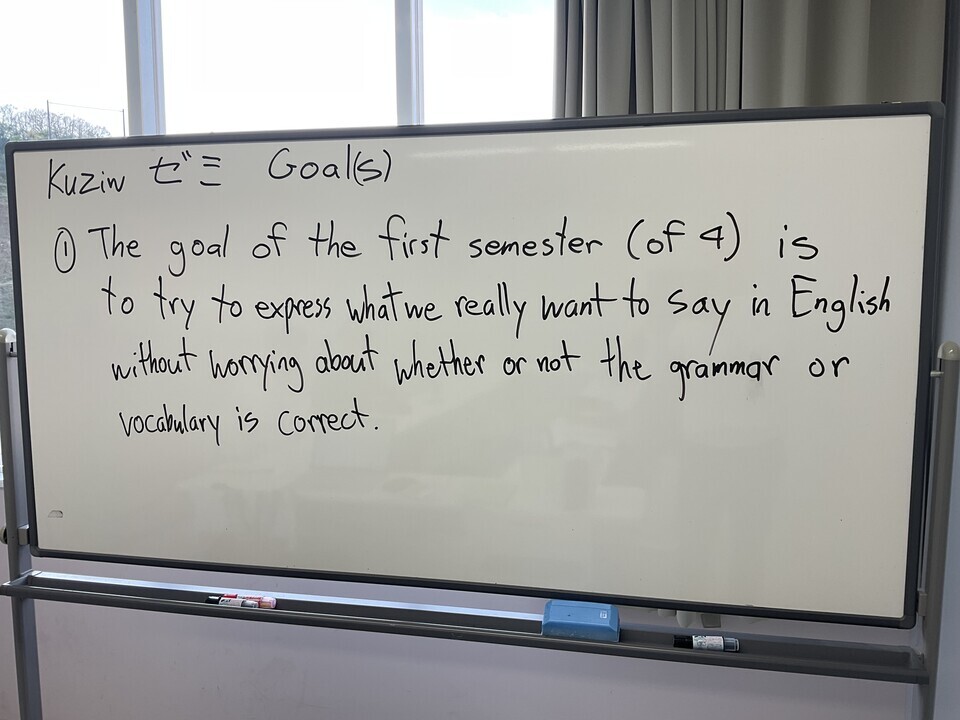 Kuzin ゼミ Goal(s)
① The goal of the first semester (of 4) is
to try to express what we really want to say in English
without worrying about whether or not the grammar or
vocabulary is correct.